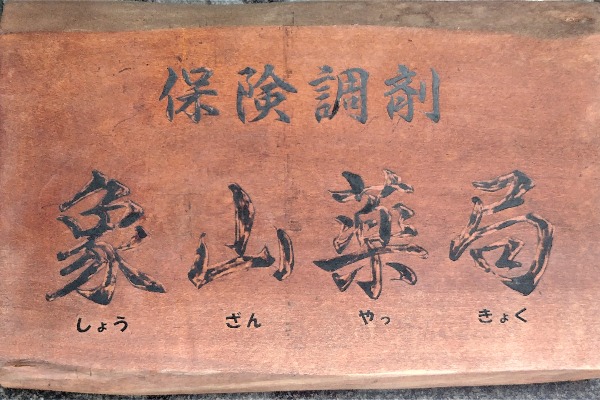 保険調剤
象山薬局
しょう ざん やっ きょく